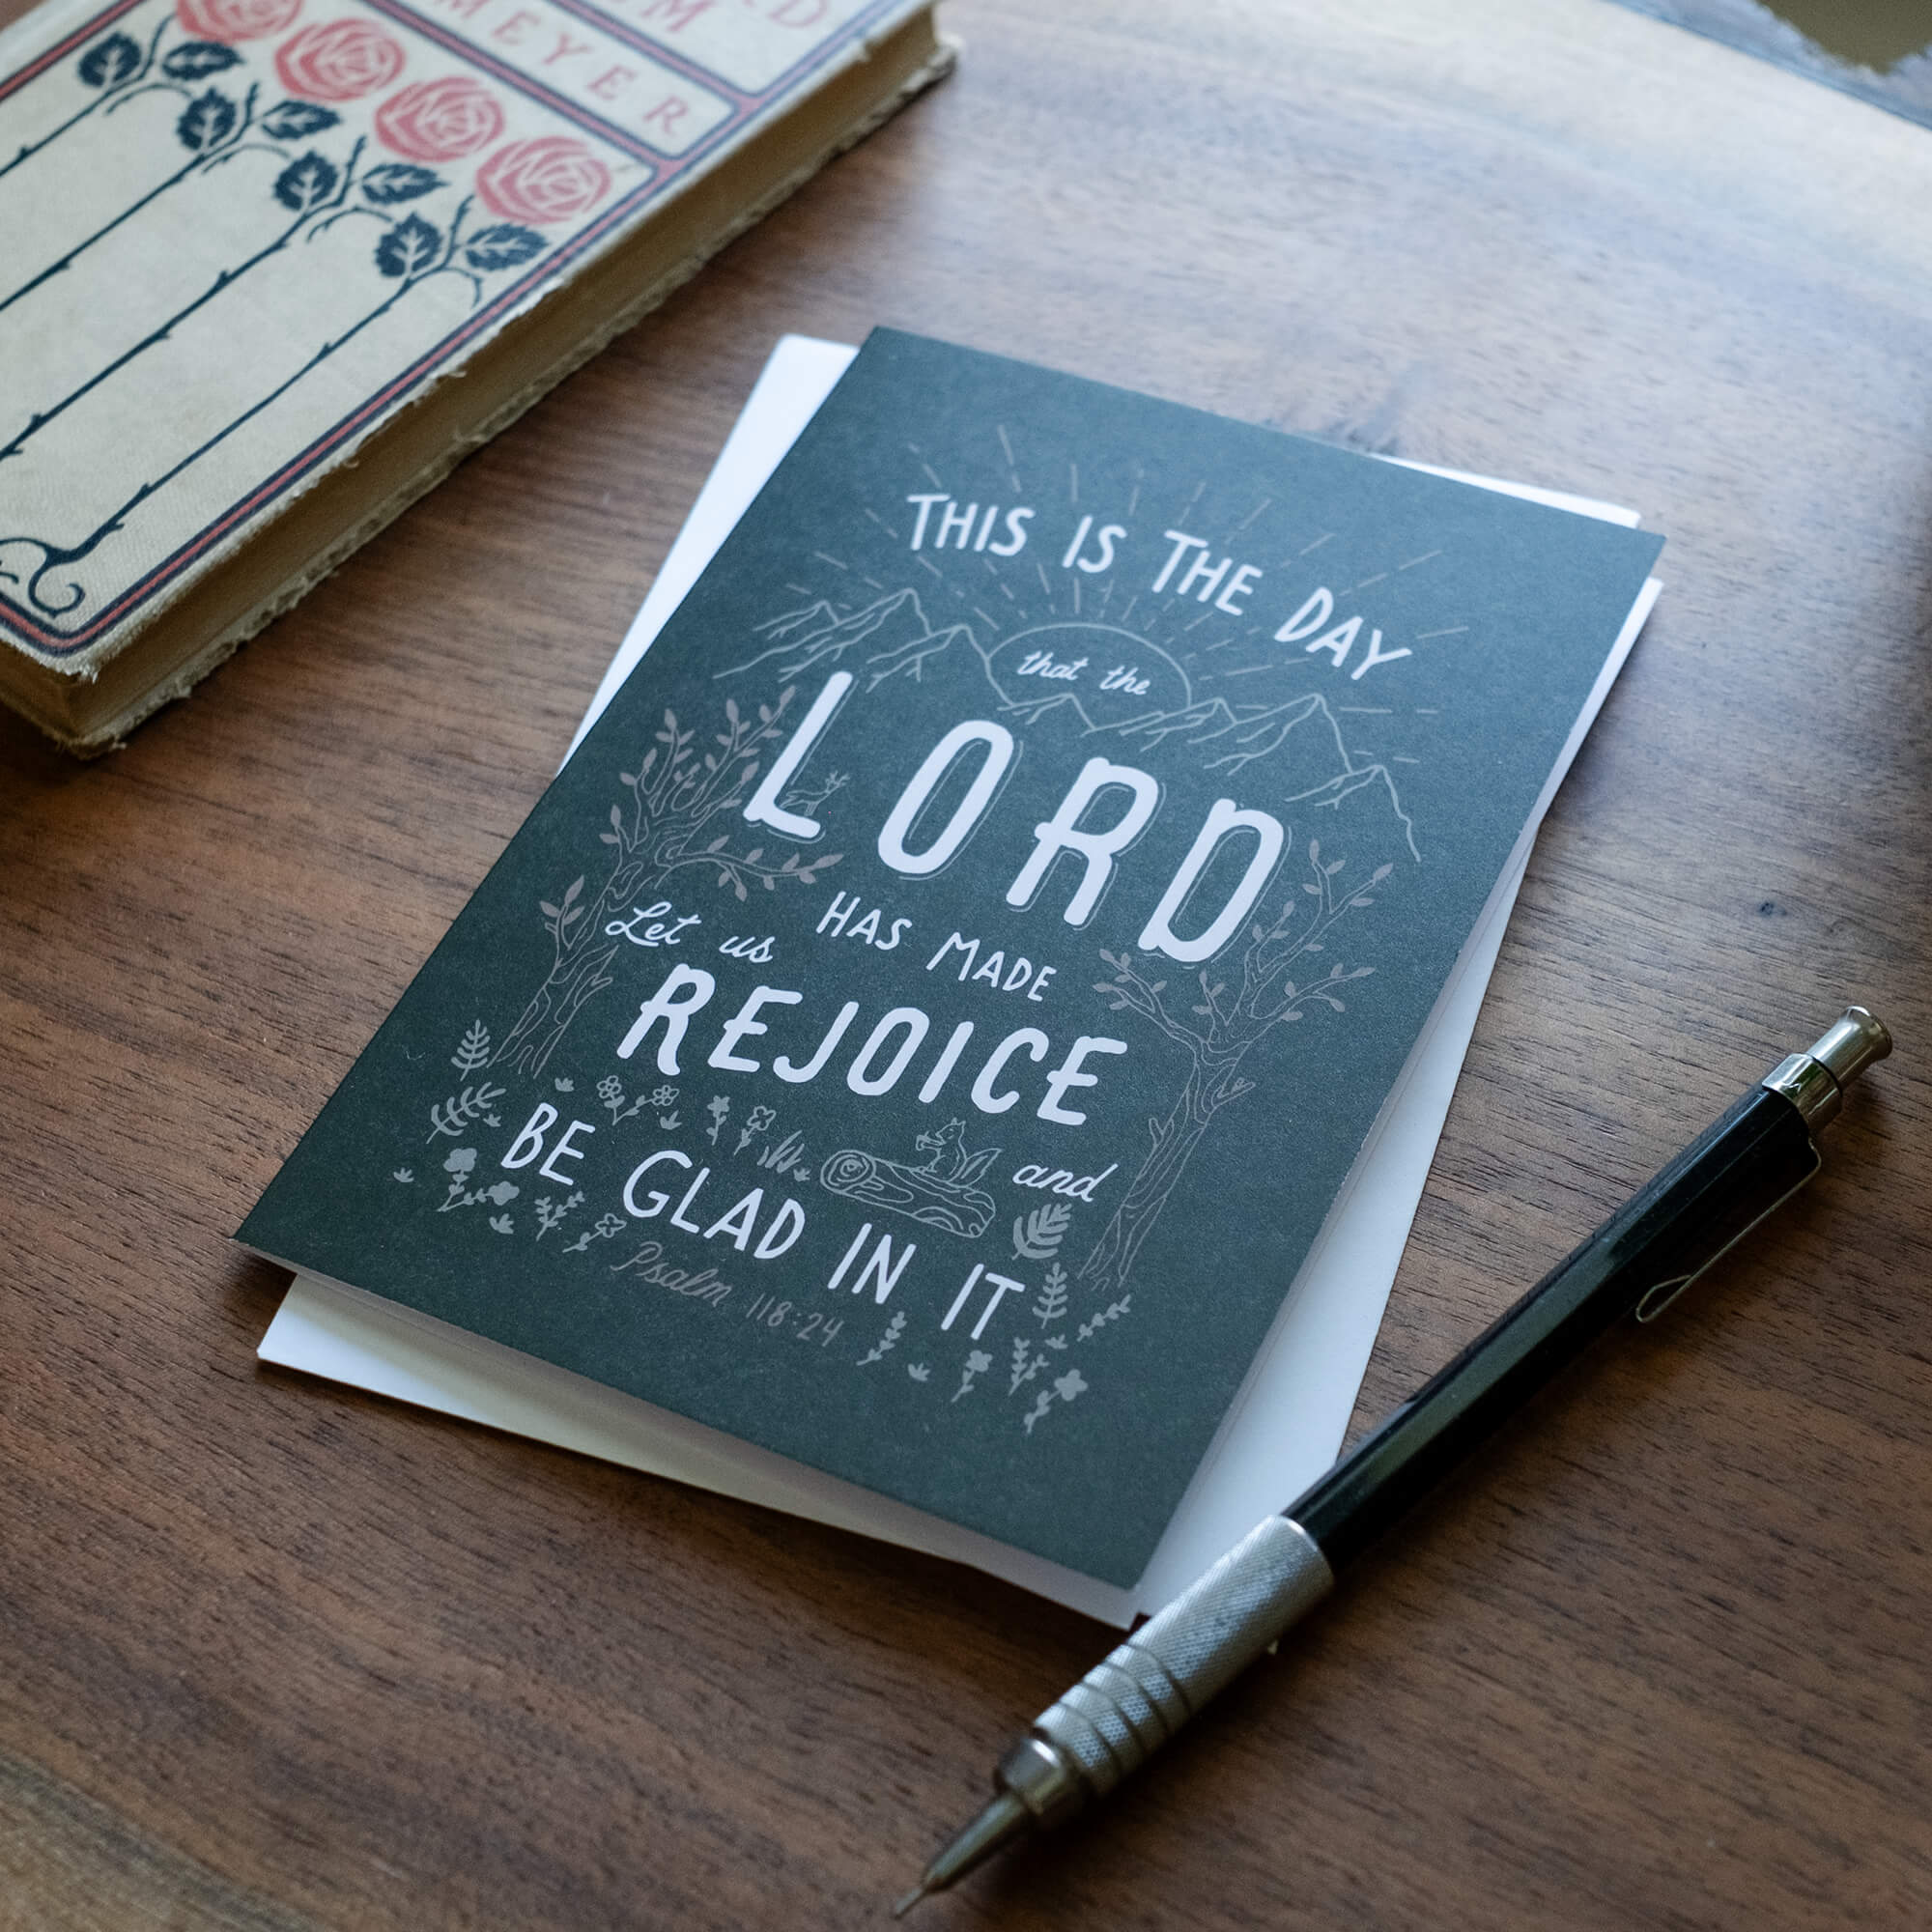 MEYER
THIS IS THE DAY
that the
LORD
HAS MADE
Let us
REJOICE
and
BE GLAD IN IT
Psalm 118:24